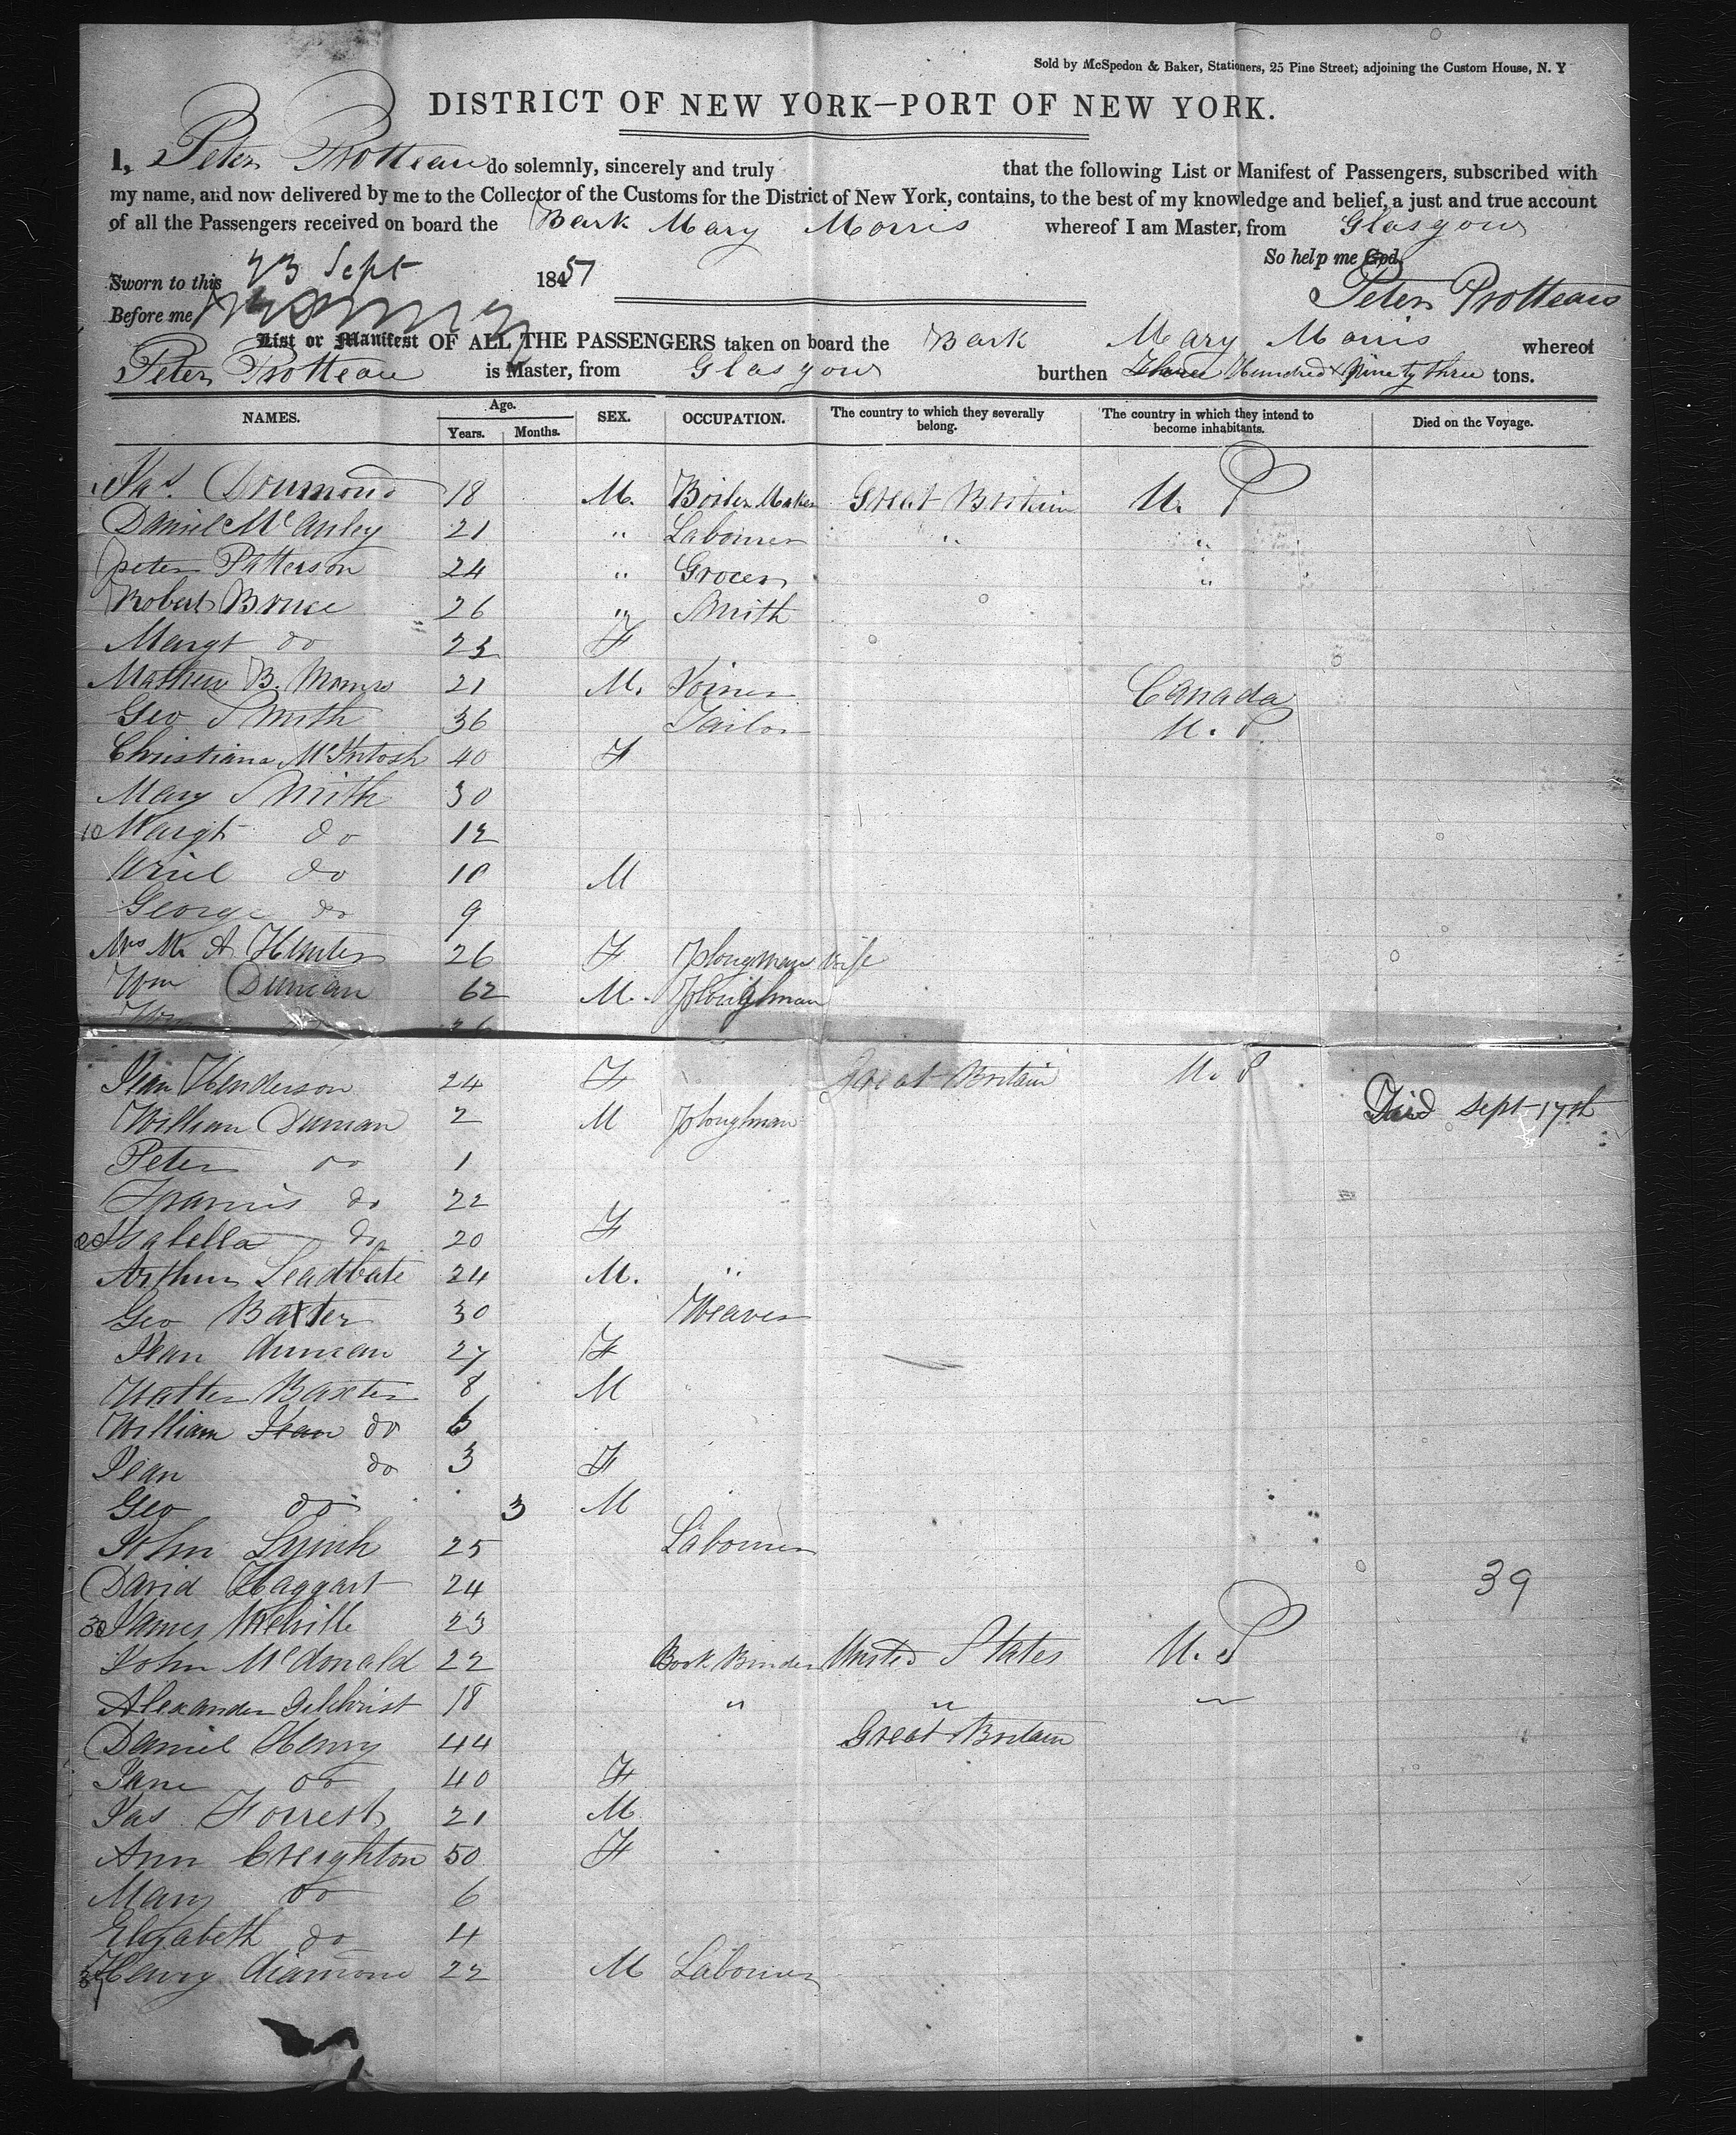 Sold by McSpedon & Baker, Stationers, 25 Pine Street, adjoining the Custom House, N. Y
DISTRICT OF NEW YORK—PORT OF NEW YORK.
I, Peter Protteau do solemnly, sincerely and truly that the following List or Manifest of Passengers, subscribed with
my name, and now delivered by me to the Collector of the Customs for the District of New York, contains, to the best of my knowledge and belief, a just and true account
of all the Passengers received on board the Bark Mary Morris whereof I am Master, from Glasgow
So help me God.
Sworn to this 23 Sept 1851
Peter Protteau
Before me
List or Manifest OF ALL THE PASSENGERS taken on board the Bark Mary Morris whereof
Peter Protteau is Master, from Glasgow burthen Three Hundred & Ninety three tons.
NAMES. Age. SEX. OCCUPATION. The country to which they severally belong. The country in which they intend to become inhabitants. Died on the Voyage.
Years. Months.
1 Jas. Drumond 18 M. Boiler Maker Great Britain U. S
Daniel McAuley 21 " Labourer " "
peter Patterson 24 " Grocer "
Robert Bruce 26 " Smith
Margt do 23 F
Mathew B. Monro 21 M. Joiner Canada
Geo Smith 36 Tailor U. S
Christiana McIntosh 40 F
Mary Smith 30
10 Margt do 12
Uriel do 10 M
George do 9
Mrs M. A Hunter 26 F Ploughmans Wife
Wm Duncan 62 M. Ploughman
Wm do 26
Jean Henderson 24 F Great Britain U. S
William Duncan 2 M Ploughman Died Sept 17th
Peter do 1
Francis do 22
20 Isabella do 20 F
Arthur Leadbate 24 M. "
Geo Baxter 30 Weaver
Jean Duncan 27 F
Walter Baxter 8 M
William Jean do 6
Jean do 3 F
Geo do 3 M
John Lynch 25 Labourer
David Haggart 24 39
30 James Melville 23
John McDonald 22 Book Binder United States U. S
Alexander Gilchrist 18 " " "
Daniel Henry 44 Great Britain
Jane do 40 F
Jas Forrest 21 M
Ann Creighton 50 F
Mary do 6
Elizabeth do 4
39 Henry Diamond 22 M Labourer